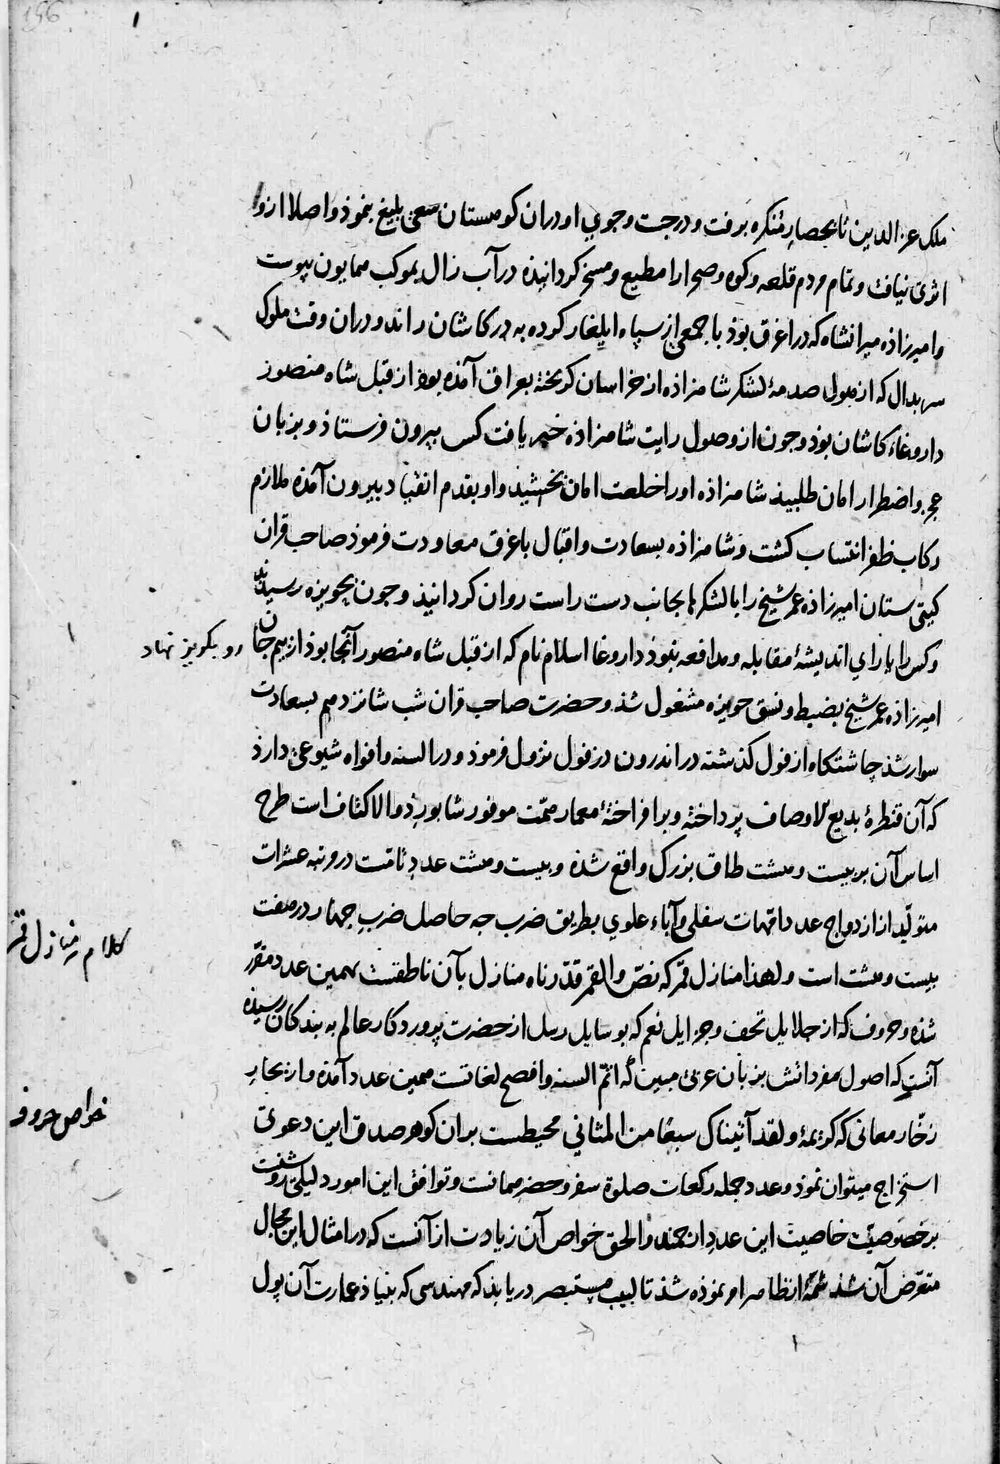 156
ملک عز الدین تا بحصار منکره برفت و در جست و جوی او دران کوهستان سعی بلیغ بنموذ و اصلا ازو
اثری نیافت و تمام مردم قلعه و کوه و صحرا را مطیع و مسخر کردانیذه در آب زال بموکب همایون پیوست
و امیرزاذه میرانشاه که در اغرق بوذ با جمعی از سپاه ایلغار کرده به در کاشان راند و دران وقت ملوک
سربدال که از هول صدمهٔ لشکر شاهزاذه از خراسان کریخته بعراق آمذه بوذ از قبل شاه منصور
داروغاء کاشان بوذ و چون از وصول رایت شاهزاذه خبر یافت کس بیرون فرستاذ و بزبان
عجز و اضطرار امان طلبیذ شاهزاذه او را خلعت امان بخشیذ و او بقدم انقیاد بیرون آمذه ملازم
رکاب ظفر انتساب کشت و شاهزاذه بسعادت و اقبال باغرق معاودت فرموذ صاحب قران
کیتی ستان امیرزاذه عمر شیخ را با لشکرها بجانب دست راست روان کردانیذ و چون بحویزه رسیذند
وکس را یارای اندیشهٔ مقابله و مدافعه نبوذ داروغا اسلام نام که از قبل شاه منصور آنجا بوذ از بیم جان
رو بکریز نهاد
امیرزاذه عمر شیخ بضبط و نسق حویزه مشغول شذ و حضرت صاحب قران شب شانزدهم بسعادت
سوار شذ چاشتکاه از فول کذشته در اندرون دزفول نزول فرموذ و در السنه و افواه شیوعی دارذ
که آن قنطرهٔ بدیع الاوصاف پرداخته و برافراختهٔ معمار همّت موفور شابور ذو الاکتاف است طرح
اساس آن بر بیست و هشت طاق بزرک واقع شذه و بیست و هشت عدد تامّست در مرتبه عشرات
متولّد از ازدواج عدد امّهات سفلی و آباء علوی بطریق ضرب چه حاصل ضرب چهار در هفت
بیست و هشت است و لهذا منازل قمر که نصّ و القمر قدّرناه منازل بآن ناطقست بهمین عدد مقرّر
کلام در منازل قمر
شذه و حروف که از جلایل تحف و جزایل نعم که بوسایل رسل از حضرت پروردکار عالم به بندکان رسیذه
آنست که اصول مفرداتش بزبان عربی مبین که اتمّ السنه و افصح لغاتست همین عدد آمذه و از بحار
خواص حروف
زخّار معانی که کریمهٔ و لقد آتیناک سبعًا من المثانی محیطست بران کوهر صدق این دعوی
استخراج میتوان نموذ و عدد جمله رکعات صلوة سفر و حضر همانست و توافق این امور دلیلی روشنست
بر خصوصیّت خاصیت این عدد ارجمند و الحق خواص آن زیادت از آنست که در امثال این مجال
متعرّض آن شذ شمهٔ از نظایر او نموذه شذ تا لبیب مستبصر دریابذ که مهندسی که بنیاذ عمارت آن پول